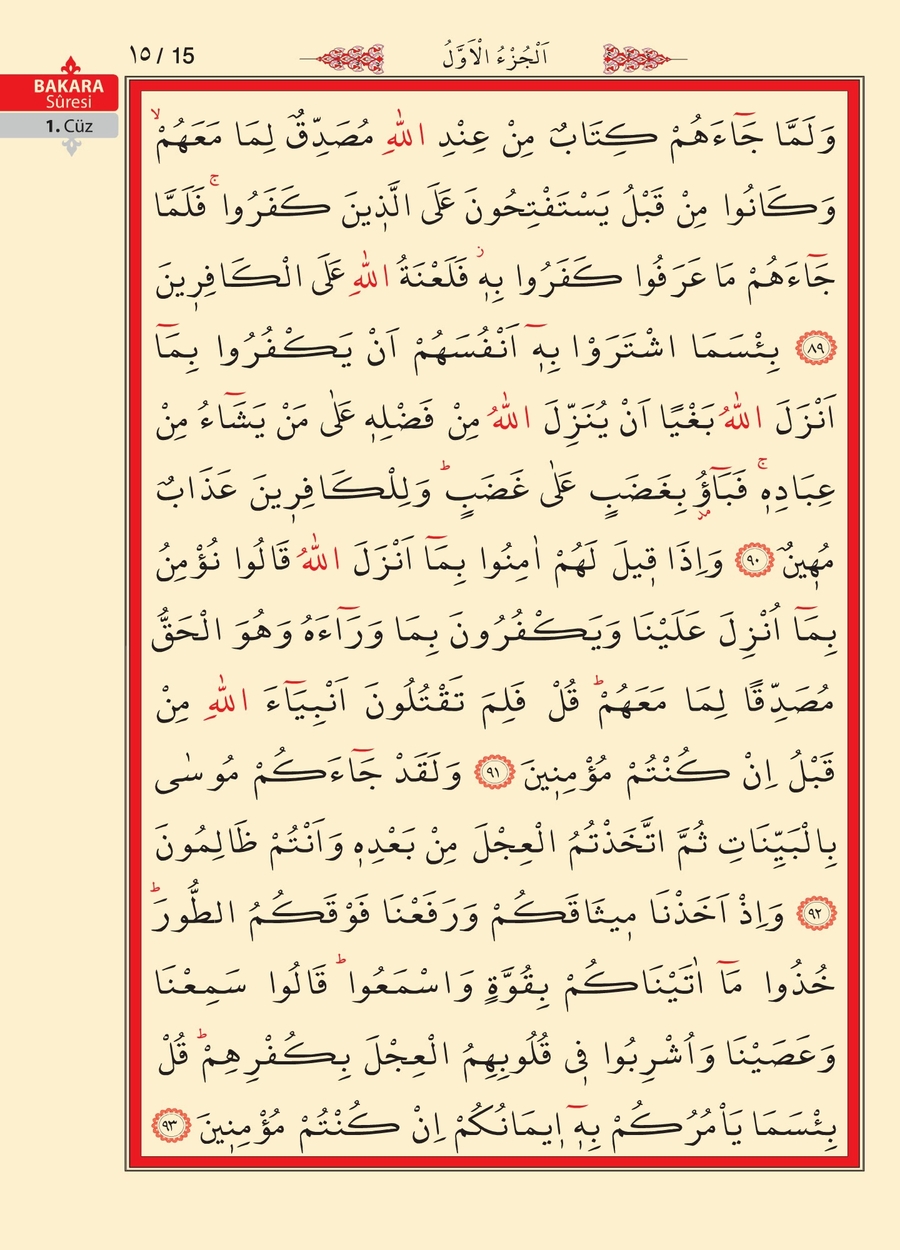 ١٥ / 15
اَلْجُزْءُ الْاَوَّلُ
BAKARA
Sûresi
1. Cüz
وَلَمَّا جَٓاءَهُمْ كِتَابٌ مِنْ عِنْدِ اللّٰهِ مُصَدِّقٌ لِمَا مَعَهُمْۙ
وَكَانُوا مِنْ قَبْلُ يَسْتَفْتِحُونَ عَلَى الَّذ۪ينَ كَفَرُواۚ فَلَمَّا
جَٓاءَهُمْ مَا عَرَفُوا كَفَرُوا بِه۪ۘ فَلَعْنَةُ اللّٰهِ عَلَى الْكَافِر۪ينَ
﴿٨٩﴾ بِئْسَمَا اشْتَرَوْا بِه۪ٓ اَنْفُسَهُمْ اَنْ يَكْفُرُوا بِمَٓا
اَنْزَلَ اللّٰهُ بَغْيًا اَنْ يُنَزِّلَ اللّٰهُ مِنْ فَضْلِه۪ عَلٰى مَنْ يَشَٓاءُ مِنْ
عِبَادِه۪ۚ فَبَٓاؤُ۫ بِغَضَبٍ عَلٰى غَضَبٍۜ وَلِلْكَافِر۪ينَ عَذَابٌ
مُه۪ينٌ ﴿٩٠﴾ وَاِذَا ق۪يلَ لَهُمْ اٰمِنُوا بِمَٓا اَنْزَلَ اللّٰهُ قَالُوا نُؤْمِنُ
بِمَٓا اُنْزِلَ عَلَيْنَا وَيَكْفُرُونَ بِمَا وَرَٓاءَهُ وَهُوَ الْحَقُّ
مُصَدِّقًا لِمَا مَعَهُمْۜ قُلْ فَلِمَ تَقْتُلُونَ اَنْبِيَٓاءَ اللّٰهِ مِنْ
قَبْلُ اِنْ كُنْتُمْ مُؤْمِن۪ينَ ﴿٩١﴾ وَلَقَدْ جَٓاءَكُمْ مُوسٰى
بِالْبَيِّنَاتِ ثُمَّ اتَّخَذْتُمُ الْعِجْلَ مِنْ بَعْدِه۪ وَاَنْتُمْ ظَالِمُونَ
﴿٩٢﴾ وَاِذْ اَخَذْنَا م۪يثَاقَكُمْ وَرَفَعْنَا فَوْقَكُمُ الطُّورَۜ
خُذُوا مَٓا اٰتَيْنَاكُمْ بِقُوَّةٍ وَاسْمَعُواۜ قَالُوا سَمِعْنَا
وَعَصَيْنَا وَاُشْرِبُوا ف۪ي قُلُوبِهِمُ الْعِجْلَ بِكُفْرِهِمْۜ قُلْ
بِئْسَمَا يَاْمُرُكُمْ بِه۪ٓ ا۪يمَانُكُمْ اِنْ كُنْتُمْ مُؤْمِن۪ينَ ﴿٩٣﴾